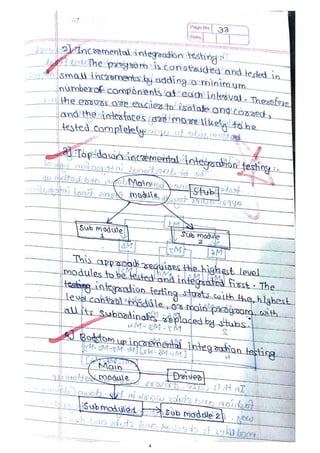 Page No. 33
Date
2) Incremental integration testing:
The program is constructed and tested in
small increments by adding a minimum
number of components at each interval. Therefore
the errors are easier to isolate and correct,
and the interfaces are more likely to be
tested completely.
a) Top down incremental integration testing:
Main
module
Stub
Sub module
1
Sub module
2
This approach requires the highest level
modules to be tested and integrated first. The
testing integration testing starts with the highest
level control module, or main program, with
all its subordinates replaced by stubs.
b) Bottom up incremental integration testing
Main
module
Driver
Submodule 1
Sub module 2
4